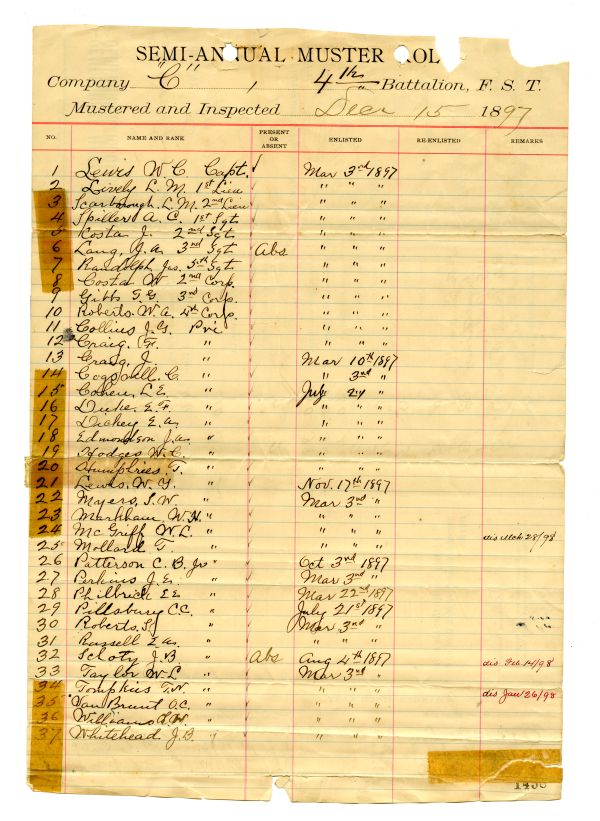 SEMI-ANNUAL MUSTER ROL
Company "C", 4th Battalion, F. S. T.
Mustered and Inspected Decr 15 1897
NO. NAME AND RANK PRESENT OR ABSENT ENLISTED RE-ENLISTED REMARKS
1 Lewis W. C. Capt. ✓ Mar 3rd 1897
2 Lively L. M. 1st Lieu ✓ " " "
3 Scarborough L. M. 2nd Lieu ✓ " " "
4 Spiller A. C. 1st Sgt ✓ " " "
5 Costa J. 2nd Sgt ✓ " " "
6 Lang, 3rd Sgt Abs " " "
7 Randolph Jas. 5th Sgt ✓ " " "
8 Costa W 2nd Corp. ✓ " " "
9 Gibbs T. G. 3rd Corp. ✓ " " "
10 Roberts W. A. 4th Corp. ✓ " " "
11 Collins J. G. Pvt ✓ " " "
12 Craig, F. " ✓ " " "
13 Craig, J. " ✓ Mar 10th 1897
14 C. " ✓ " 3rd "
15 Cohen, L. E. " ✓ July "
16 Duke, E. F. " ✓ " " "
17 Dickey E. A. " ✓ " " "
18 Edmondson J. A. " ✓ " " "
19 Hodges W. C. " ✓ " " "
20 Humphries T. " ✓ " " "
21 Lewis, W. Y. " ✓ Nov. 17th 1897
22 Mayers, S. W. " ✓ Mar 3rd "
23 Markham W. H. " ✓ " " "
24 McGriff W. L. " ✓ " " " dis Mch 28/98
25 Mollard T. " ✓ " " "
26 Patterson C. B. Jr " ✓ Oct 3rd 1897
27 Perkins J. E. " ✓ Mar 3rd "
28 Philbrick E. E. " ✓ Mar 22nd 1897
29 Pillsbury C. C. " ✓ July 21st 1897
30 Roberts " ✓ Mar 3rd "
31 Russell E. A. " ✓ " " "
32 J. B " Abs Aug 4th 1897 dis Feb 14/98
33 Taylor W. L " ✓ Mar 3rd "
34 Tompkins T. W. " ✓ " " " dis Jan 26/98
35 Van Brunt A. C. " ✓ " " "
36 Williams " ✓ " " "
37 Whitehead J. B. " ✓ " " "